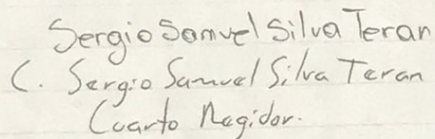 Sergio Samuel Silva Teran
C. Sergio Samuel Silva Teran
Cuarto Regidor.